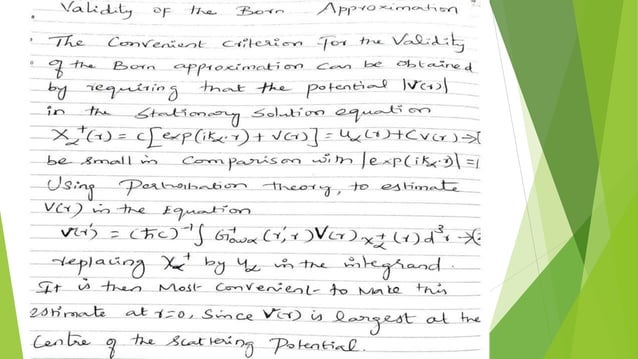 Validity of the Born Approximation
The Convenient Criterion for the Validity
of the Born approximation can be obtained
by requiring that the potential |V(r)|
in the Stationary Solution equation
X_α^+(r) = C[exp(ik_α·r) + V(r)] = U_α(r) + C V(r) →
be small in comparison with |exp(ik_α·r)| = 1
Using Perturbation theory, to estimate
V(r) in the Equation
V(r') = (ħC)^-1 ∫ (r', r) V(r) X_α^+ (r) d^3r →
replacing X_α^+ by U_α in the integrand.
It is then Most Convenient to Make this
estimate at r=0, Since V(r) is largest at the
Centre of the Scattering Potential.